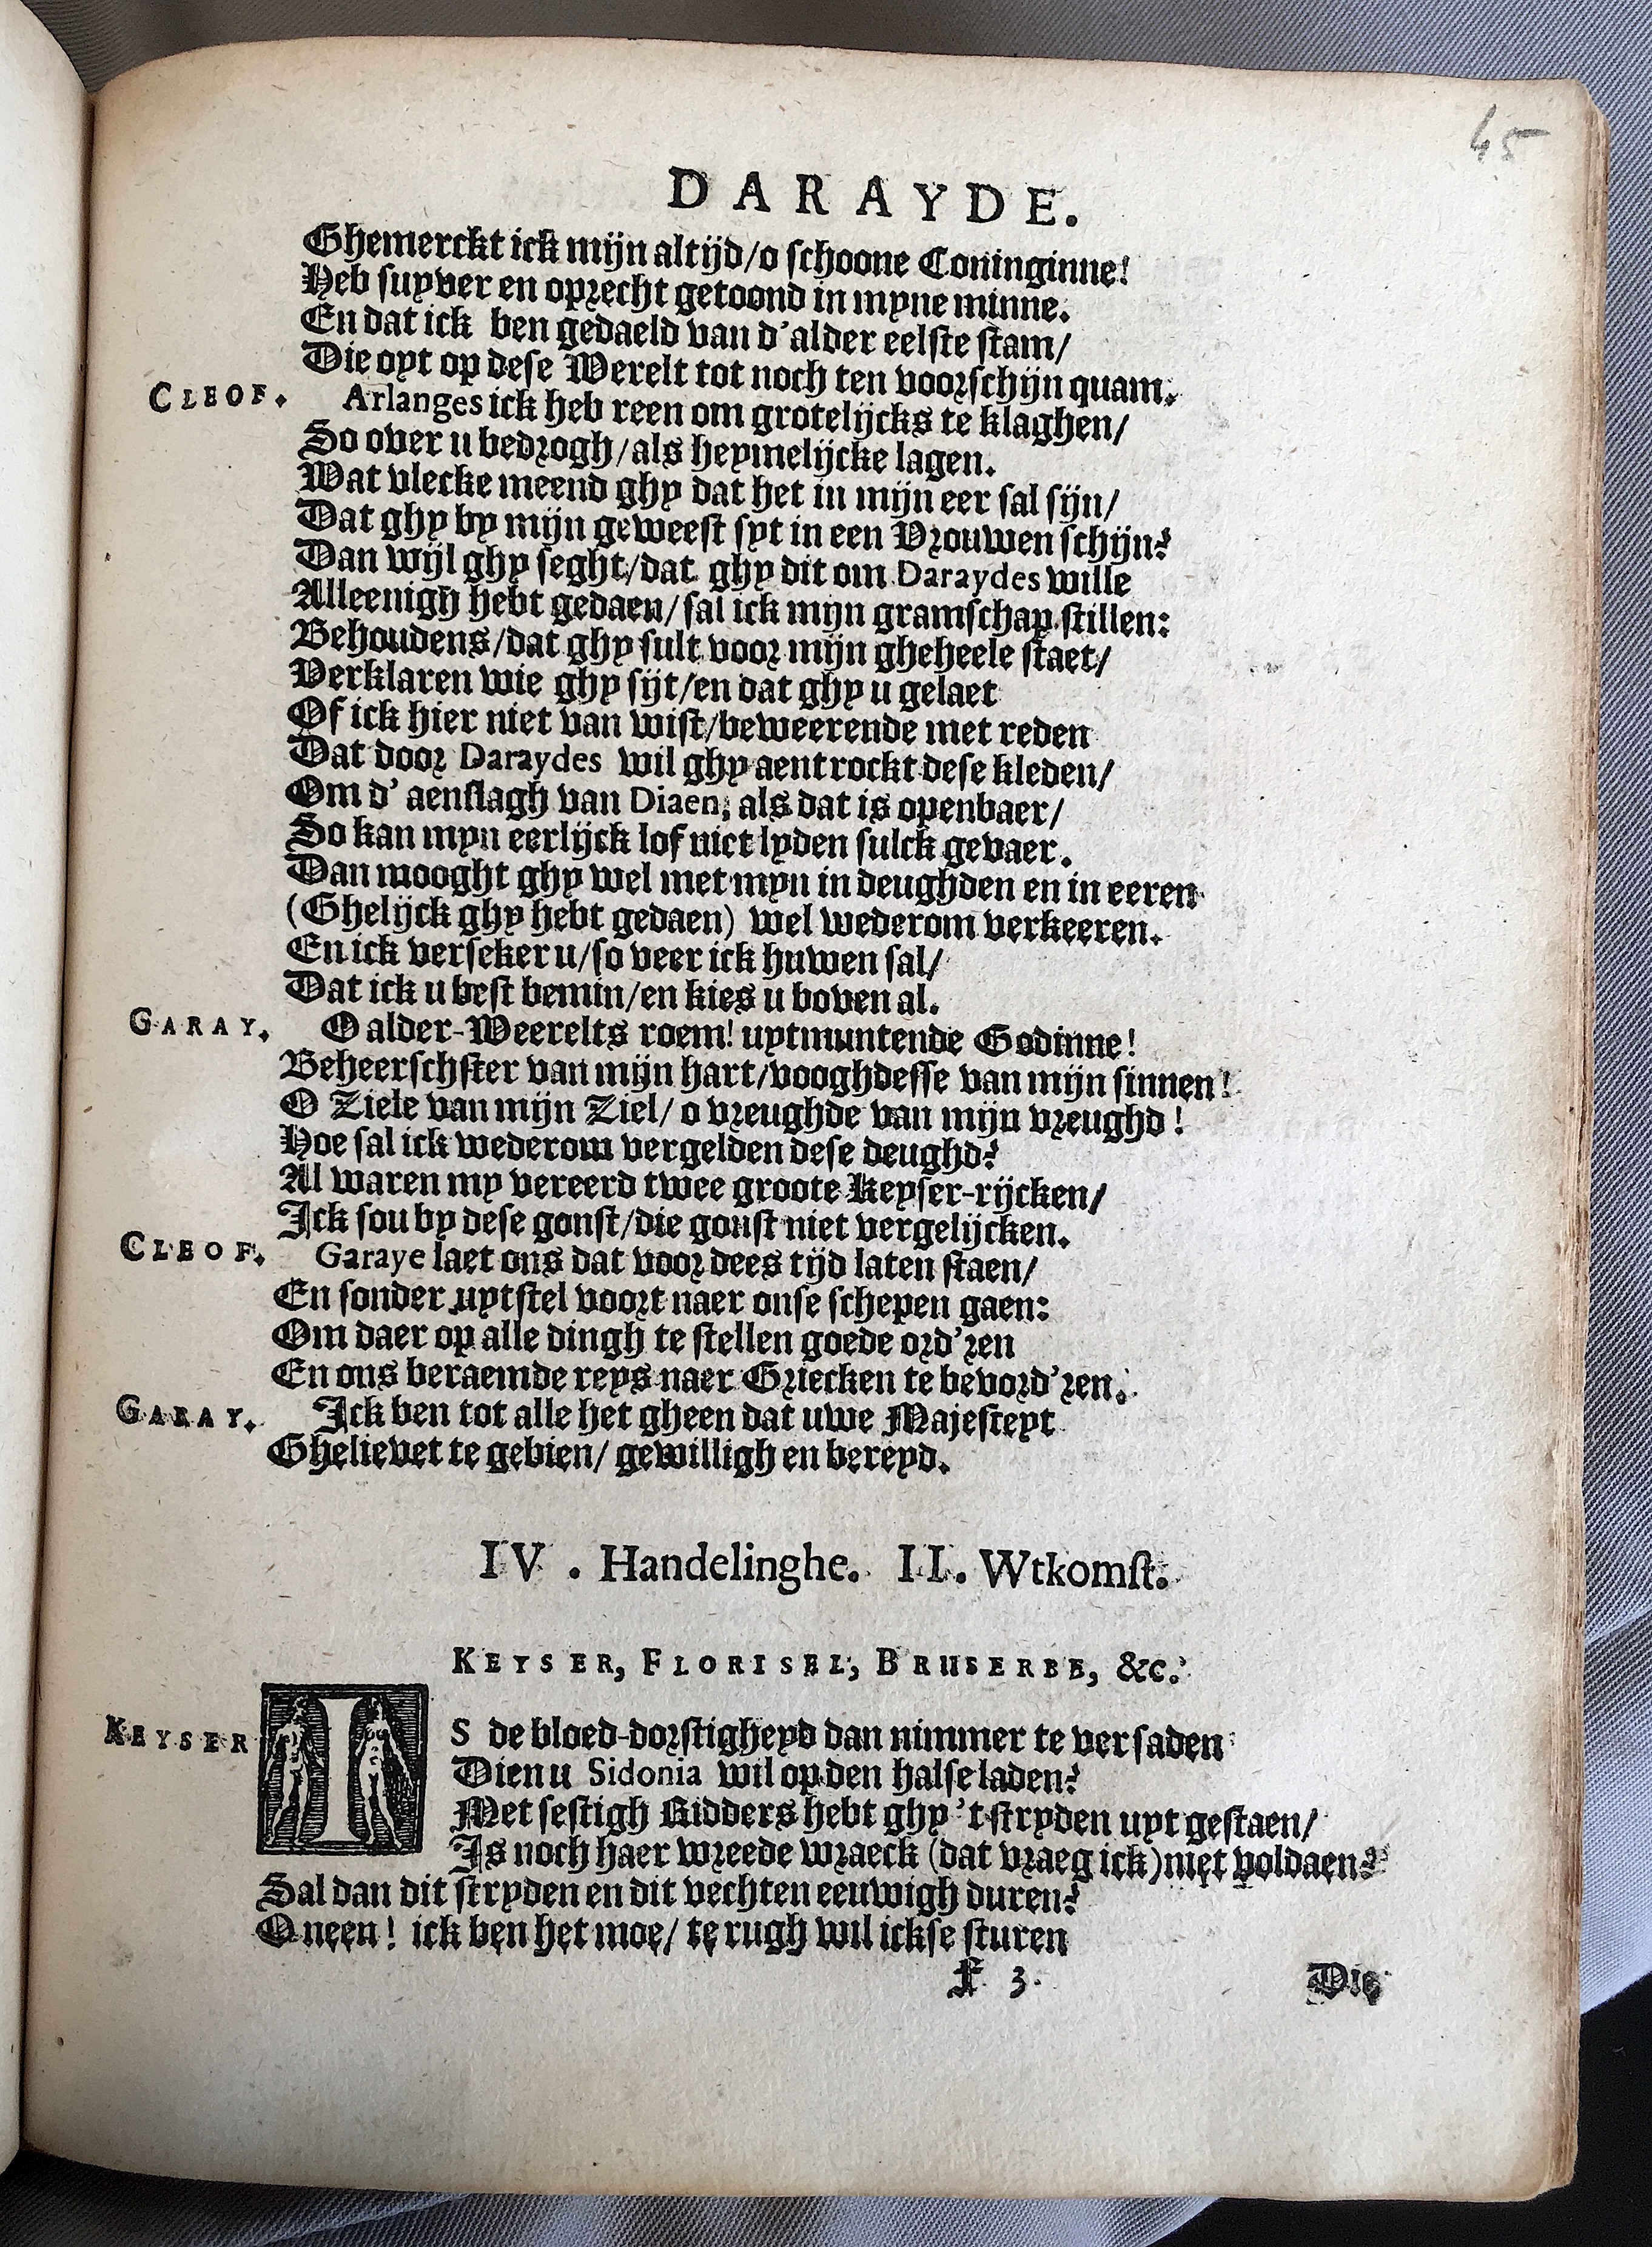 45
DARAYDE.
Ghemerckt ick mijn altijd/o schoone Coninginne!
Heb suyver en oprecht getoond in myne minne.
En dat ick ben gedaeld van d'alder eelste stam/
Die oyt op dese Werelt tot noch ten voorschijn quam.
CLEOF. Arlanges ick heb reen om grotelijcks te klaghen/
So over u bedrogh/als heymelijcke lagen.
Wat vlecke meend ghy dat het in mijn eer sal sijn/
Dat ghy by mijn geweest syt in een Vrouwen schijn?
Dan wijl ghy seght/dat ghy dit om Daraydes wille
Alleenigh hebt gedaen/sal ick mijn gramschap stillen:
Behoudens/dat ghy sult voor mijn gheheele staet/
Verklaren wie ghy sijt/en dat ghy u gelaet
Of ick hier niet van wist/beweerende met reden
Dat door Daraydes wil ghy aentrockt dese kleden/
Om d' aenslagh van Diaen; als dat is openbaer/
So kan myn eerlijck lof niet lyden sulck gevaer.
Dan mooght ghy wel met myn in deughden en in eeren
(Ghelijck ghy hebt gedaen) wel wederom verkeeren.
En ick verseker u/so veer ick huwen sal/
Dat ick u best bemin/en kies u boven al.
GARAY. O alder-Weerelts roem! uytmuntende Godinne!
Beheerschster van mijn hart/vooghdesse van mijn sinnen!
O Ziele van mijn Ziel/ o vreughde van mijn vreughd!
Hoe sal ick wederom vergelden dese deughd?
Al waren my vereerd twee groote Keyser-rijcken/
Ick sou by dese gonst/die gonst niet vergelijcken.
CLEOF. Garaye laet ons dat voor dees tijd laten staen/
En sonder uytstel voort naer onse schepen gaen:
Om daer op alle dingh te stellen goede ord'ren
En ons beraemde reys naer Griecken te bevord'ren.
GARAY. Ick ben tot alle het gheen dat uwe Majesteyt
Ghelievet te gebien/ gewilligh en bereyd.
IV. Handelinghe. II. Wtkomst.
KEYSER, FLORISEL, BRUSERBE, &c.
KEYSER IS de bloed-dorstigheyd dan nimmer te versaden
Dien u Sidonia wil op den halse laden?
Met sestigh Ridders hebt ghy 't stryden uyt gestaen/
Is noch haer wreede wraeck (dat vraeg ick) niet voldaen?
Sal dan dit stryden en dit vechten eeuwigh duren?
O neen! ick ben het moe/ te rugh wil ickse sturen
f 3.
Die